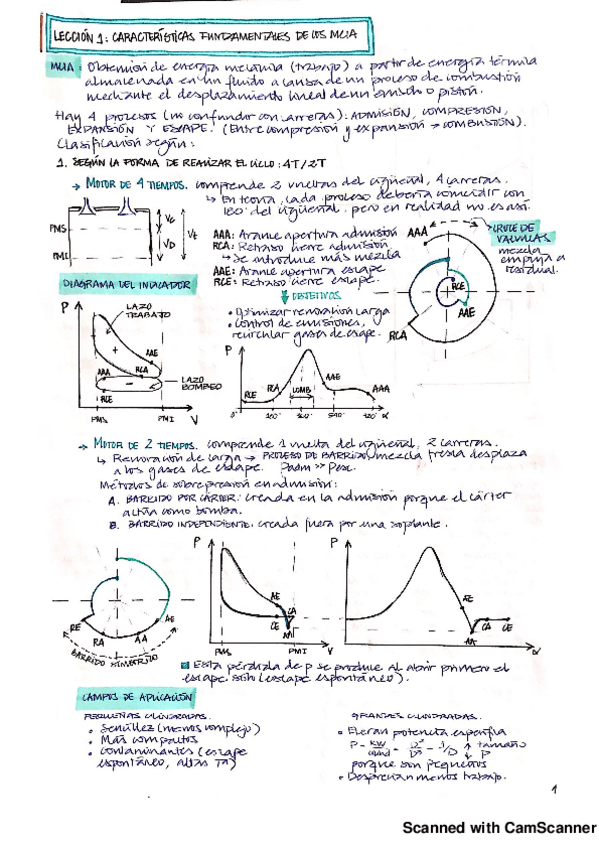 LECCIÓN 1: CARACTERÍSTICAS FUNDAMENTALES DE LOS MCIA
MCIA: Obtención de energía mecánica (trabajo) a partir de energía térmica
almacenada en un fluido a causa de un proceso de combustión
mediante el desplazamiento lineal de un émbolo o pistón.
Hay 4 procesos (no confundir con carreras): ADMISIÓN, COMPRESIÓN,
EXPANSIÓN Y ESCAPE. (Entre compresión y expansión → COMBUSTIÓN).
Clasificación según:
1. SEGÚN LA FORMA DE REALIZAR EL CICLO: 4T/2T
→ MOTOR DE 4 TIEMPOS. comprende 2 vueltas del cigüeñal, 4 carreras.
↳ En teoría, cada proceso debería coincidir con
180° del cigüeñal, pero en realidad no es así.
PMS
PMI
Vc
VD
Vt
AAA: Avance apertura admisión
RCA: Retraso cierre admisión
↳ Se introduce más mezcla
AAE: Avance apertura escape
RCE: Retraso cierre escape.
AAA
RCE
AAE
RCA
CRUCE DE
VÁLVULAS
mezcla
empuja a
residual.
OBJETIVOS
• Optimizar renovación carga
• Control de emisiones,
recircular gases de escape.
DIAGRAMA DEL INDICADOR
P
LAZO
TRABAJO
+
AAE
AAA
RCA
-
RCE
LAZO
BOMBEO
PMS
PMI
V
P
RCE
RCA
COMB
AAE
AAA
0°
180°
360°
540°
720°
α
→ MOTOR DE 2 TIEMPOS. comprende 1 vuelta del cigüeñal, 2 carreras.
↳ Renovación de carga → PROCESO DE BARRIDO, mezcla fresca desplaza
a los gases de escape. Padm >> Pesc.
Métodos de sobrepresión en admisión:
A. BARRIDO POR CÁRTER: creada en la admisión porque el cárter
actúa como bomba.
B. BARRIDO INDEPENDIENTE: creada fuera por una soplante.
RE
RA
AA
AE
BARRIDO SIMÉTRICO
P
AE
CA
CE
AA
PMS
PMI
V
P
AE
CA
CE
AA
α
Esta pérdida de p se produce al abrir primero el
escape sólo (escape espontáneo).
CAMPOS DE APLICACIÓN
PEQUEÑAS CILINDRADAS.
• Sencillez (menos complejo)
• Más compactos
• Contaminantes (escape
espontáneo, altas Tª)
GRANDES CILINDRADAS.
• Elevan potencia específica
porque son pequeños
• Desprecian menos trabajo.
1
Scanned with CamScanner